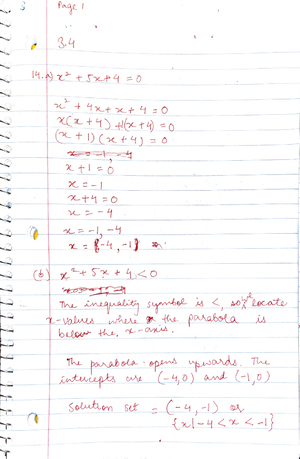 Page 1
3.4
14. A) x² + 5x + 4 = 0
x² + 4x + x + 4 = 0
x(x + 4) + 1(x + 4) = 0
(x + 1) (x + 4) = 0
x = -1, -4
x + 1 = 0
x = -1
x + 4 = 0
x = -4
x = -1, -4
x = {-4, -1}
(b) x² + 5x + 4 < 0
The inequality symbol is <, so locate
x-values where the parabola is
below the x-axis.
The parabola opens upwards. The
intercepts are (-4,0) and (-1,0)
Solution set = (-4, -1) or
{x|-4 < x < -1}